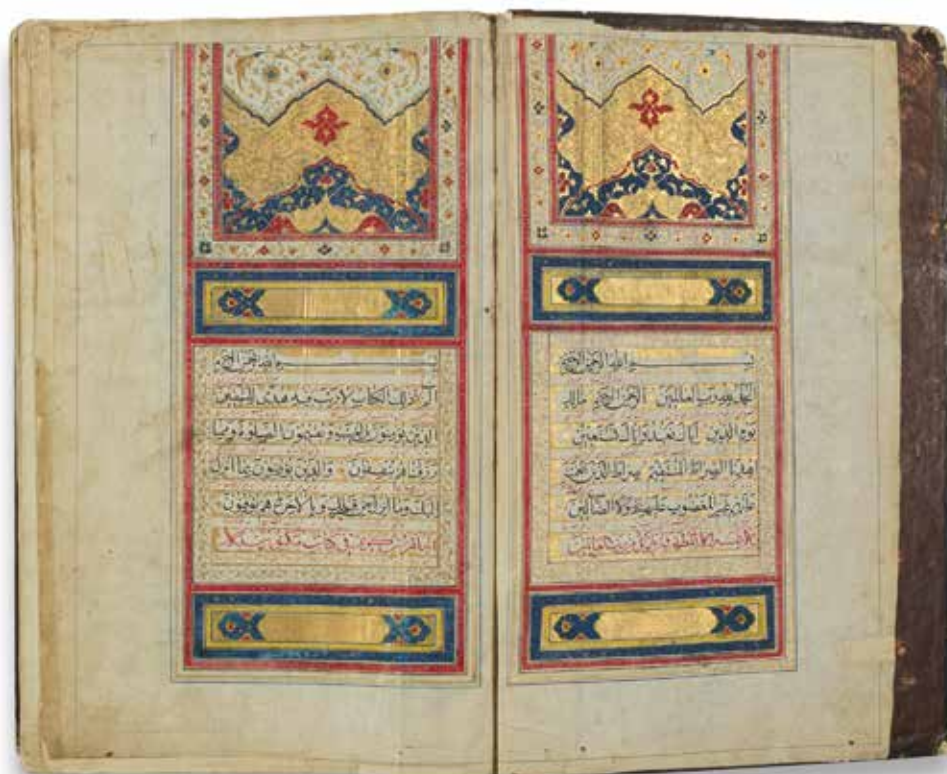 بسم الله الرحمن الرحيم
الحمد لله رب العالمين الرحمن الرحيم مالك
يوم الدين اياك نعبد واياك نستعين
اهدنا الصراط المستقيم صراط الذين انعمت
عليهم غير المغضوب عليهم ولا الضالين
لا يمسه الا المطهرون تنزيل من رب العالمين
بسم الله الرحمن الرحيم
الم ذلك الكتاب لا ريب فيه هدى للمتقين
الذين يؤمنون بالغيب ويقيمون الصلوة ومما
رزقناهم ينفقون والذين يؤمنون بما انزل
اليك وما انزل من قبلك وبالاخرة هم يوقنون
انه لقرآن كريم في كتاب مكنون